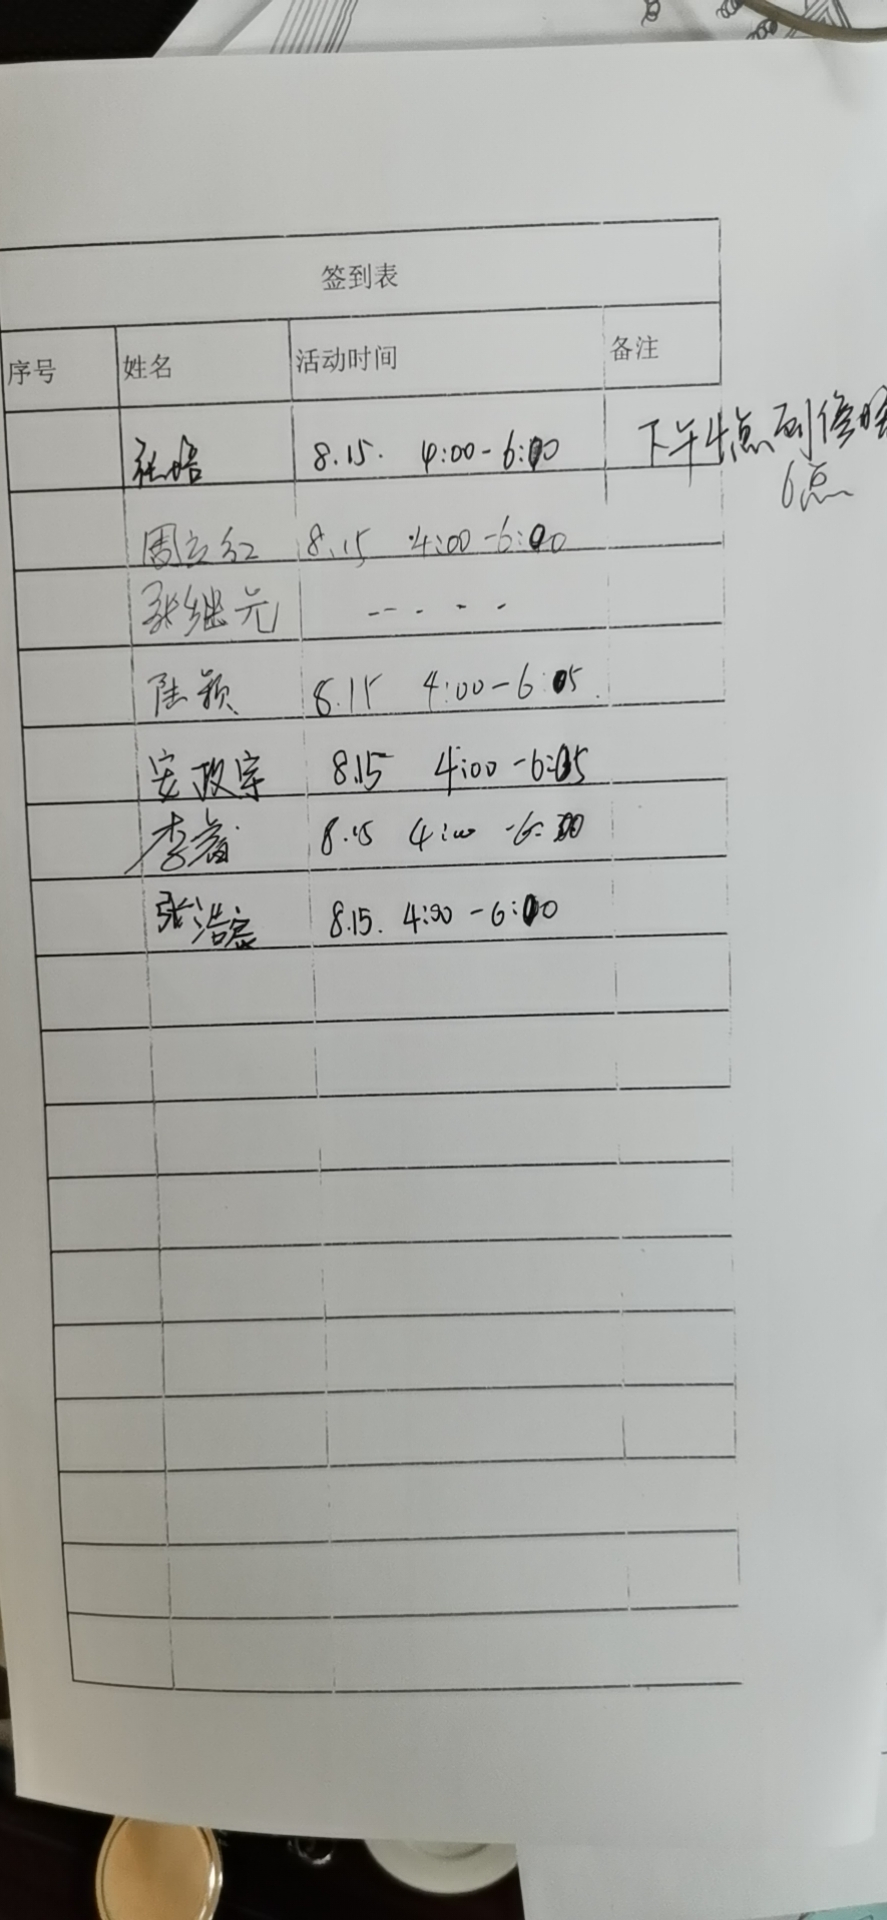 签到表
序号 姓名 活动时间 备注
8.15. 4:00-6:00 下午4点到傍晚
6点
周立红 8.15 4:00-6:00
张继元 -- - - -
陆颖 8.15 4:00-6:05
安政宇 8.15 4:00-6:05
李 8.15 4:00 -6:00
张浩 8.15. 4:00-6:00